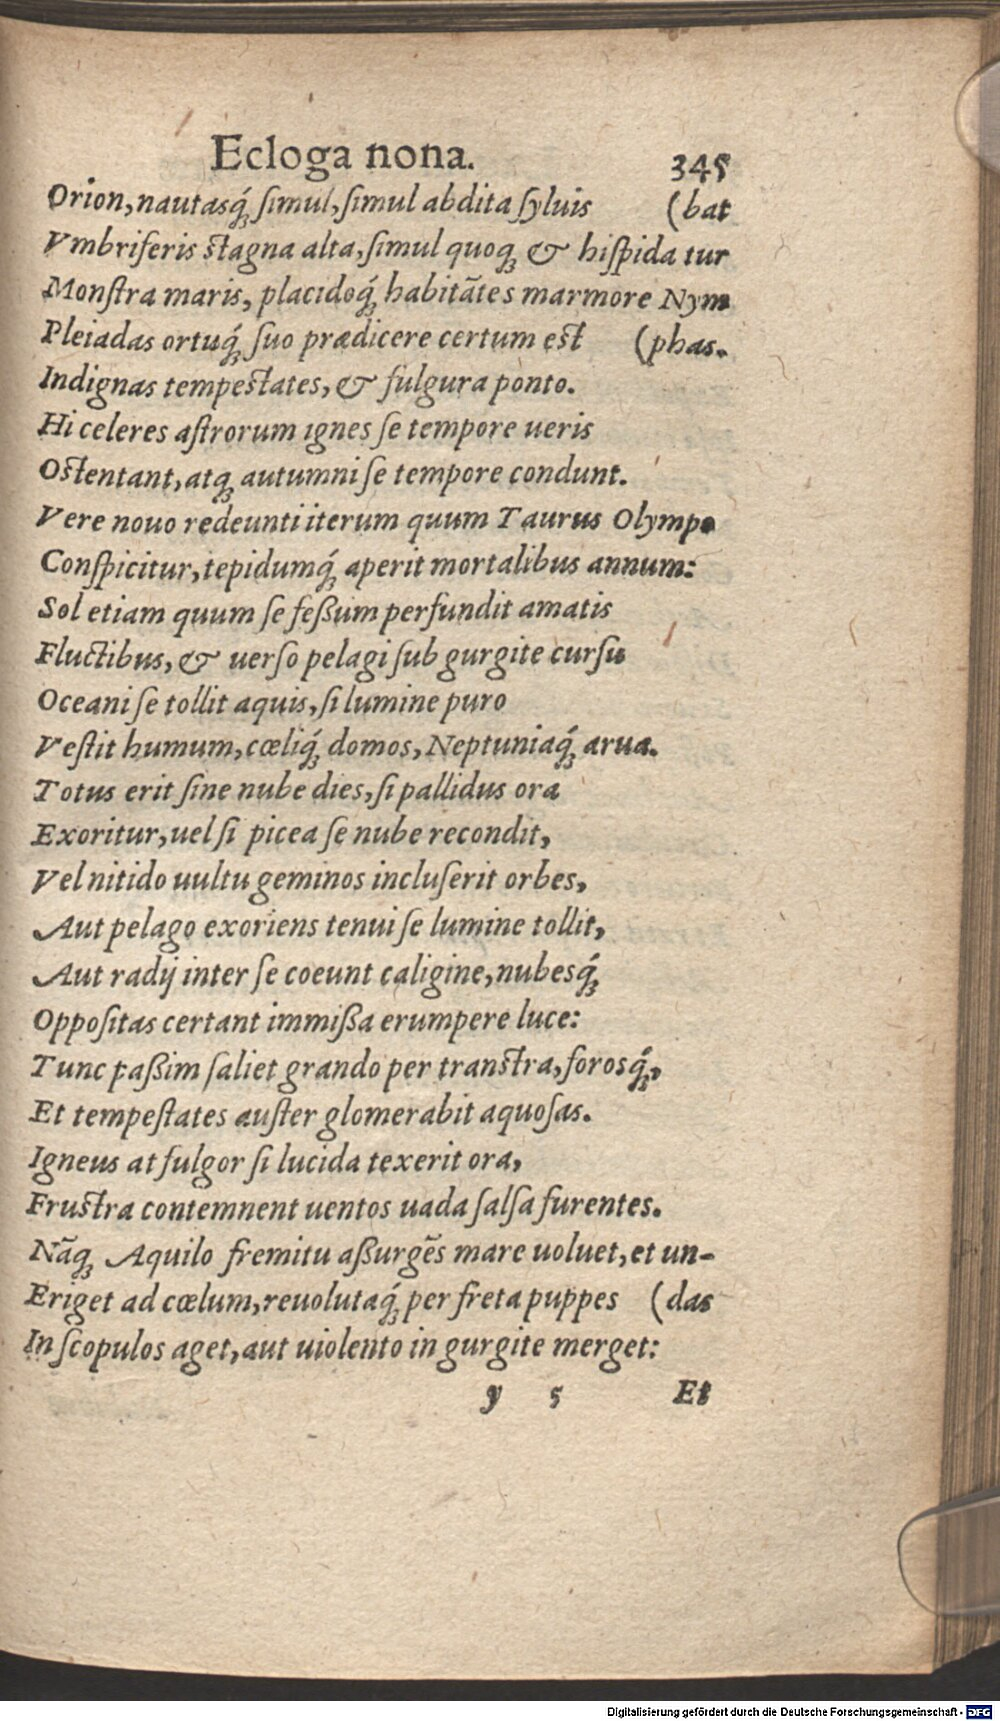 Ecloga nona. 345
Orion, nautasq́; ſimul, ſimul abdita ſyluis (bat
Vmbriferis ſtagna alta, ſimul quoq; & hiſpida tur
Monſtra maris, placidoq́; habitātes marmore Nym
Pleiadas ortuq́; ſuo prædicere certum eſt (phas.
Indignas tempeſtates, & fulgura ponto.
Hi celeres aſtrorum ignes ſe tempore ueris
Oſtentant, atq; autumni ſe tempore condunt.
Vere nouo redeunti iterum quum Taurus Olympo
Conſpicitur, tepidumq́; aperit mortalibus annum:
Sol etiam quum ſe feßum perfundit amatis
Fluctibus, & uerſo pelagi ſub gurgite curſu
Oceani ſe tollit aquis, ſi lumine puro
Veſtit humum, cœliq́; domos, Neptuniaq́; arua.
Totus erit ſine nube dies, ſi pallidus ora
Exoritur, uel ſi picea ſe nube recondit,
Vel nitido uultu geminos incluſerit orbes,
Aut pelago exoriens tenui ſe lumine tollit,
Aut radij inter ſe coeunt caligine, nubesq́;
Oppoſitas certant immißa erumpere luce:
Tunc paßim ſaliet grando per tranſtra, forosq́;,
Et tempeſtates auſter glomerabit aquoſas.
Igneus at fulgor ſi lucida texerit ora,
Fruſtra contemnent uentos uada ſalſa furentes.
Nāq; Aquilo fremitu aßurgēs mare uoluet, et un-
Eriget ad cœlum, reuolutaq́; per freta puppes (das
In ſcopulos aget, aut uiolento in gurgite merget:
y 5 Et
Digitalisierung gefördert durch die Deutsche Forschungsgemeinschaft - DFG